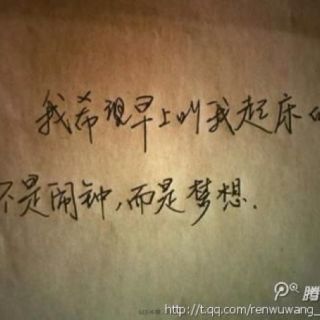 我希望早上叫我起床的
不是闹钟,而是梦想.
腾
http://t.qq.com/renwuwang_